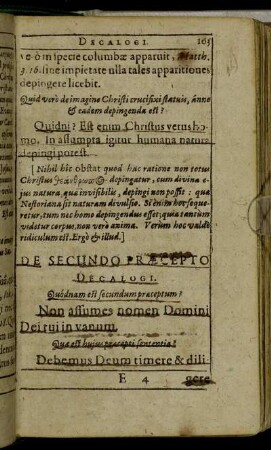 DECALOGI. 103
in specie columbæ apparuit, Matth.
3. 16. sine impietate ulla tales apparitiones
depingere licebit.
Quid verò de imagine Christi crucifixi statuis, ánne
& eadem depingenda est?
Quidni? Est enim Christus verus ho-
mo. In assumpta igitur humana natura
depingi potest.
[ Nihil hîc obstat quod hac ratione non totus
Christus θεάνθρωπος depingatur, cum divina e-
jus natura, quæ invisibilis, depingi non possit: quæ
Nestoriana sit naturam divulsio. Si enim hoc seque-
retur, tum nec homo depingendus esset, quia tantùm
videtur corpus, non verò anima. Verùm hoc valdè
ridiculum est. Ergò & illud.]
DE SECUNDO PRÆCEPTO
DECALOGI.
Quódnam est secundum præceptum?
Non assumes nomen Domini
Dei tui in vanum.
Quæ est hujus præcepti sententia?
Debemus Deum timere & dili-
E 4 gere